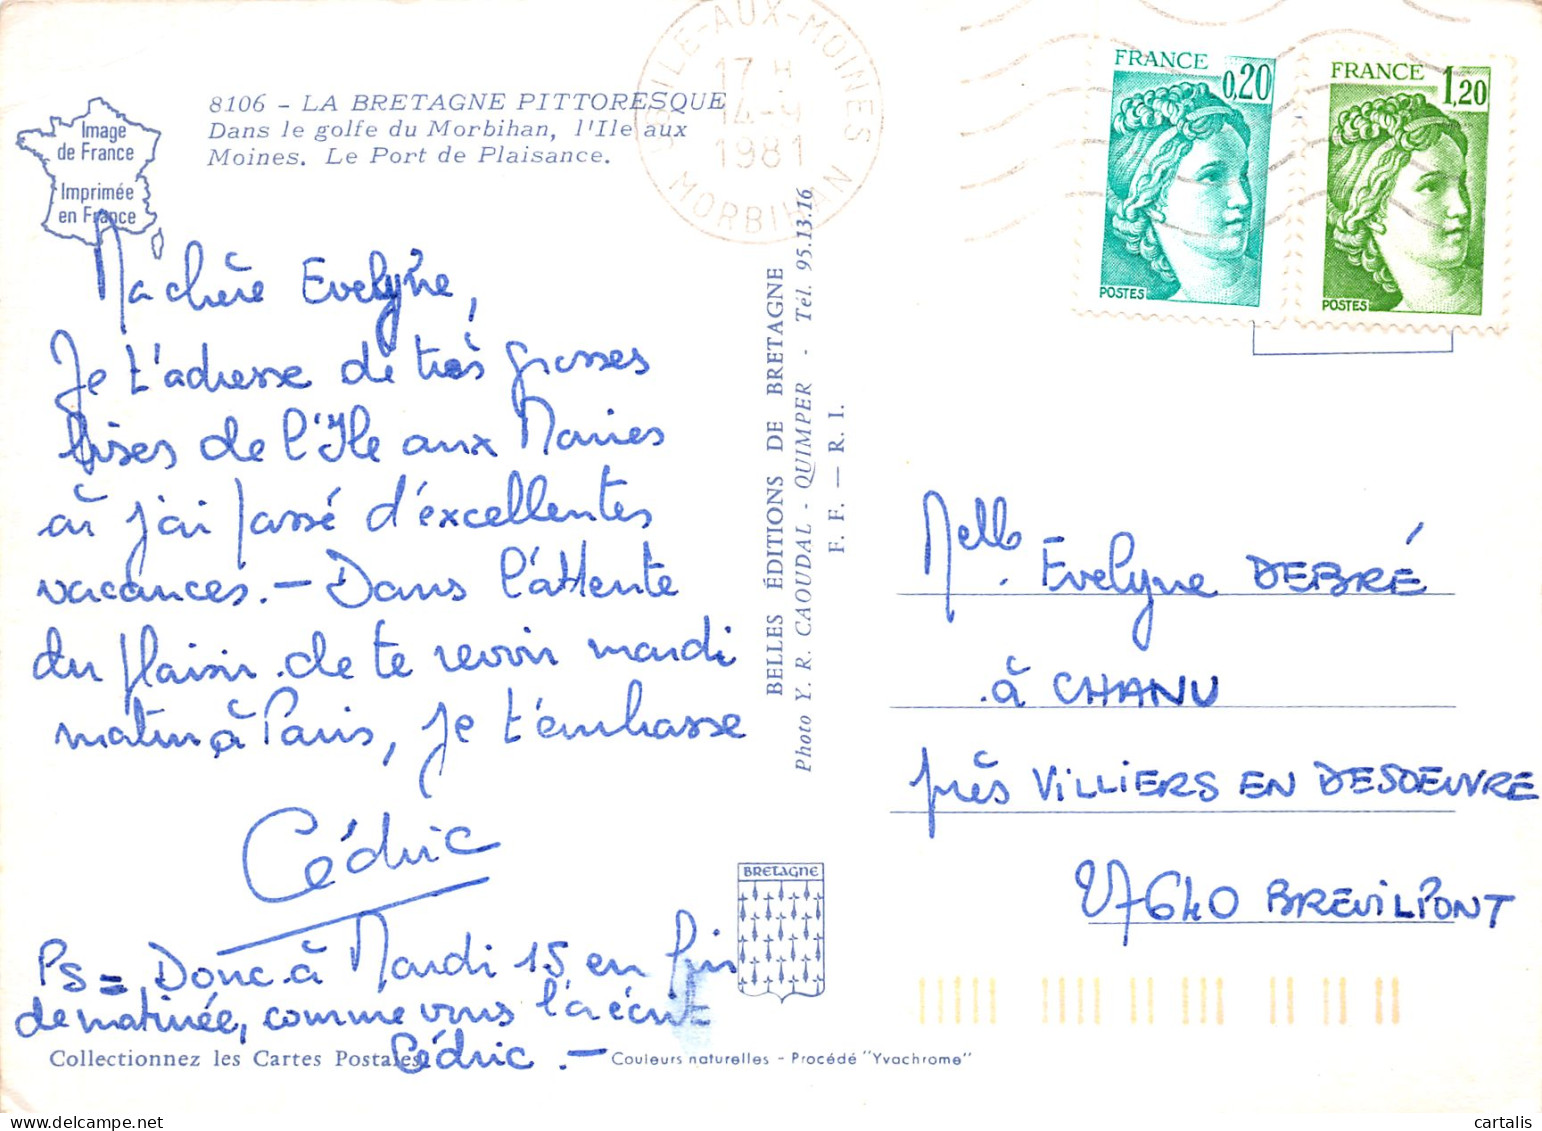 8106 - LA BRETAGNE PITTORESQUE
Dans le golfe du Morbihan, l'Ile aux
Moines. Le Port de Plaisance.
Image
de France
Imprimée
en France
Ma chère Evelyne,
Je t'adresse de très grosses
bises de l'Ile aux Moines
où j'ai passé d'éxcellentes
vacances. — Dans l'attente
du plaisir de te revoir mardi
matin à Paris, je t'embrasse
Cédric
PS = Donc à Mardi 15 en fin
de matinée, comme vous l'a écrit
Cédric. —
Collectionnez les Cartes Postales
Couleurs naturelles - Procédé "Yvachrome"
BELLES ÉDITIONS DE BRETAGNE
Photo Y. R. CAOUDAL - QUIMPER - Tél. 95.13.16
F. F. — R. I.
BRETAGNE
ILE-AUX-MOINES
17 H
14-9
1981
MORBIHAN
FRANCE
0,20
POSTES
FRANCE
1,20
POSTES
Melle Evelyne DEBRÉ
à CHANU
près VILLIERS EN DESOEUVRE
27640 BREUILPONT
cartalis